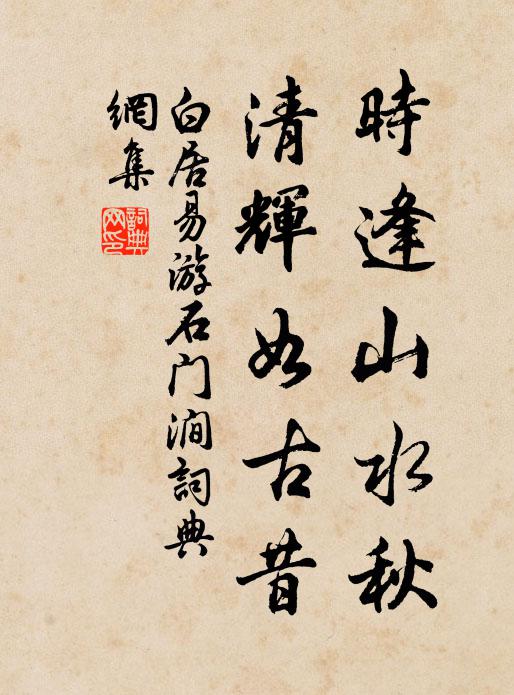 時逢山水秋
清輝如古昔
白居易游石门澗詞典
網集
詞典
网印